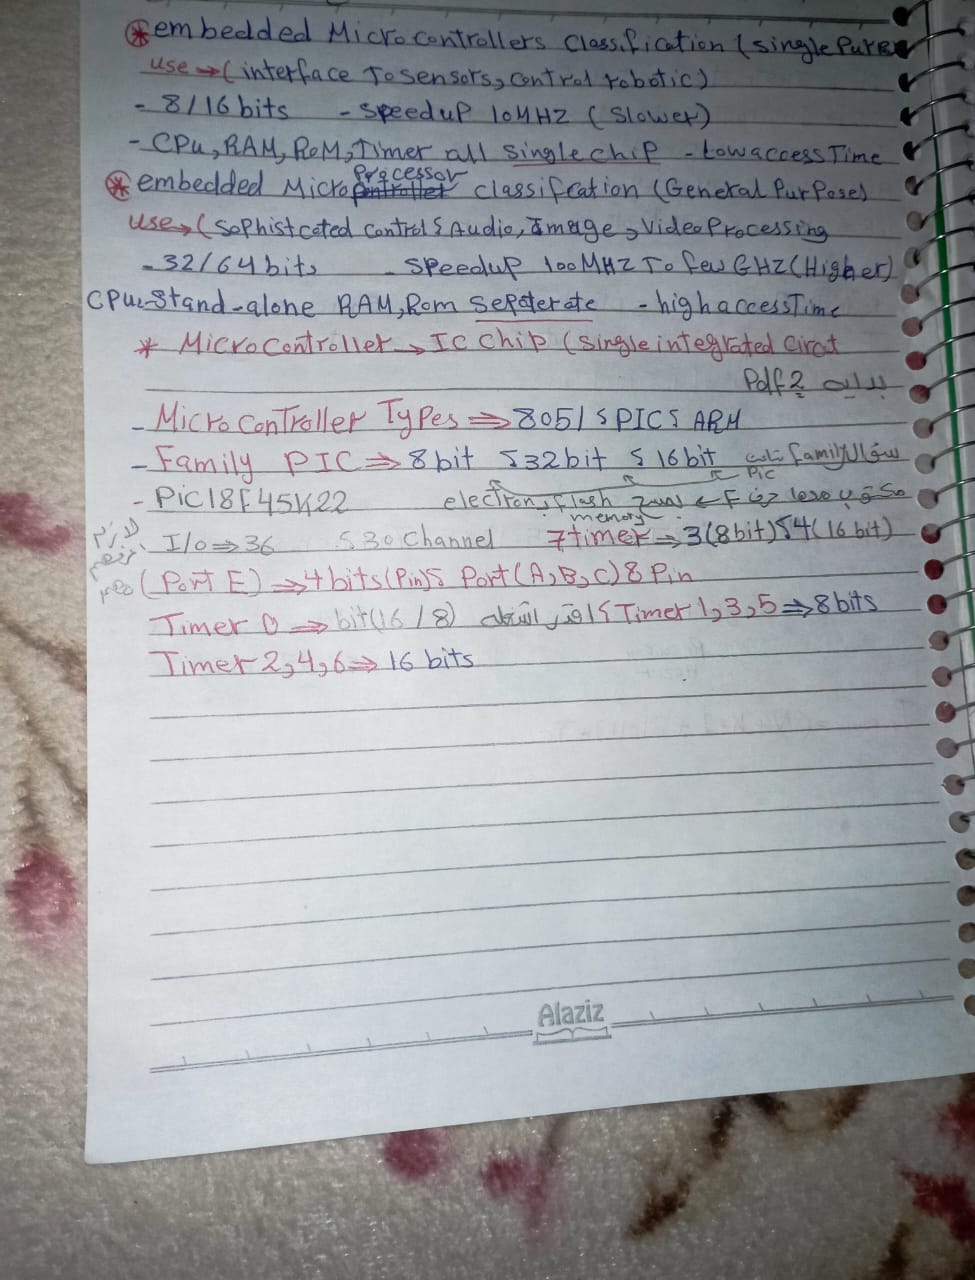 * embedded Microcontrollers Classification (single Pur
use → ( interface To sensors, control robotic)
- 8/16 bits - speedup 10MHZ ( Slower)
- CPu, RAM, RoM, Timer all single chip - Low access Time
* embedded Micro Processor classification (General Purpose)
use → (Sophistcated control & Audio, Image, Video Processing
- 32/64 bits - speedup 100MHZ To few GHZ (Higher)
CPu Stand-alone RAM, Rom Separate - high access Time
* MicroController → IC Chip (Single integrated Circut
بدايه Pdf 2
- MicroController Types ⇒ 8051 & PIC & ARM
- Family PIC ⇒ 8 bit & 32 bit & 16 bit
Pic
- Pic18F45K22 electron, flash ← F
memory
لازم
I/o ⇒ 36 & 30 Channel 7 timer ⇒ 3(8bit) & 4(16 bit)
(Port E) ⇒ 4 bits(Pin) & Port(A,B,C) 8 Pin
Timer 0 ⇒ bit(16/8) & Timer 1,3,5 ⇒ 8bits
Timer 2,4,6 ⇒ 16 bits
Alaziz